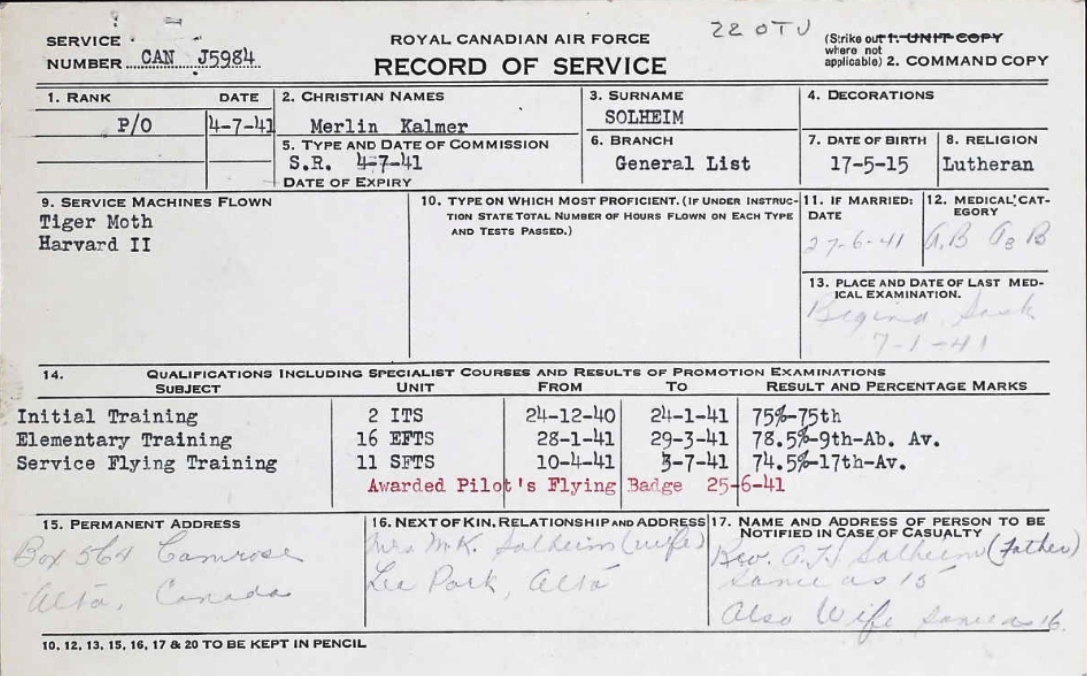 22 OTU
SERVICE NUMBER CAN J5984
ROYAL CANADIAN AIR FORCE
RECORD OF SERVICE
(Strike out where not applicable) 1. UNIT COPY
2. COMMAND COPY
1. RANK DATE
P/O 4-7-41
2. CHRISTIAN NAMES
Merlin Kalmer
3. SURNAME
SOLHEIM
4. DECORATIONS
5. TYPE AND DATE OF COMMISSION
S.R. 4-7-41
DATE OF EXPIRY
6. BRANCH
General List
7. DATE OF BIRTH
17-5-15
8. RELIGION
Lutheran
9. SERVICE MACHINES FLOWN
Tiger Moth
Harvard II
10. TYPE ON WHICH MOST PROFICIENT. (IF UNDER INSTRUC-
TION STATE TOTAL NUMBER OF HOURS FLOWN ON EACH TYPE
AND TESTS PASSED.)
11. IF MARRIED:
DATE
27-6-41
12. MEDICAL CAT-
EGORY
A,B A3 B
13. PLACE AND DATE OF LAST MED-
ICAL EXAMINATION.
Regina, Sask
7-1-41
14. QUALIFICATIONS INCLUDING SPECIALIST COURSES AND RESULTS OF PROMOTION EXAMINATIONS
SUBJECT UNIT FROM TO RESULT AND PERCENTAGE MARKS
Initial Training 2 ITS 24-12-40 24-1-41 75%-75th
Elementary Training 16 EFTS 28-1-41 29-3-41 78.5%-9th-Ab. Av.
Service Flying Training 11 SFTS 10-4-41 3-7-41 74.5%-17th-Av.
Awarded Pilot's Flying Badge 25-6-41
15. PERMANENT ADDRESS
Box 564 Camrose
Alta, Canada
16. NEXT OF KIN, RELATIONSHIP AND ADDRESS
Mrs M.K. Solheim (wife)
Lea Park, Alta
17. NAME AND ADDRESS OF PERSON TO BE
NOTIFIED IN CASE OF CASUALTY
Rev. Solheim (Father)
same as 15
Also Wife same as 16.
10, 12, 13, 15, 16, 17 & 20 TO BE KEPT IN PENCIL